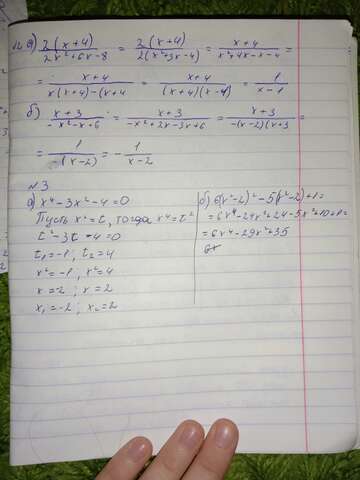 №2 а) 2(x+4)/(2x²+6x-8) = 2(x+4)/(2(x²+3x-4)) = (x+4)/(x²+4x-x-4) =
= (x+4)/(x(x+4)-(x+4) = (x+4)/((x+4)(x-1) = 1/(x-1)
б) (x+3)/(-x²-x+6) = (x+3)/(-x²+2x-3x+6) = (x+3)/(-(x-2)(x+3) =
= 1/(-(x-2)) = -1/(x-2)
№3
а) x⁴-3x²-4=0
Пусть x²=t, тогда x⁴=t²
t²-3t-4=0
t₁=-1; t₂=4
x²=-1, x²=4
x=2; x=2
x₁=-2; x₂=2
б) 6(x²-2)²-5(x²-2)+1=
=6x⁴-24x²+24-5x²+10+1=
=6x⁴-29x²+35
6x